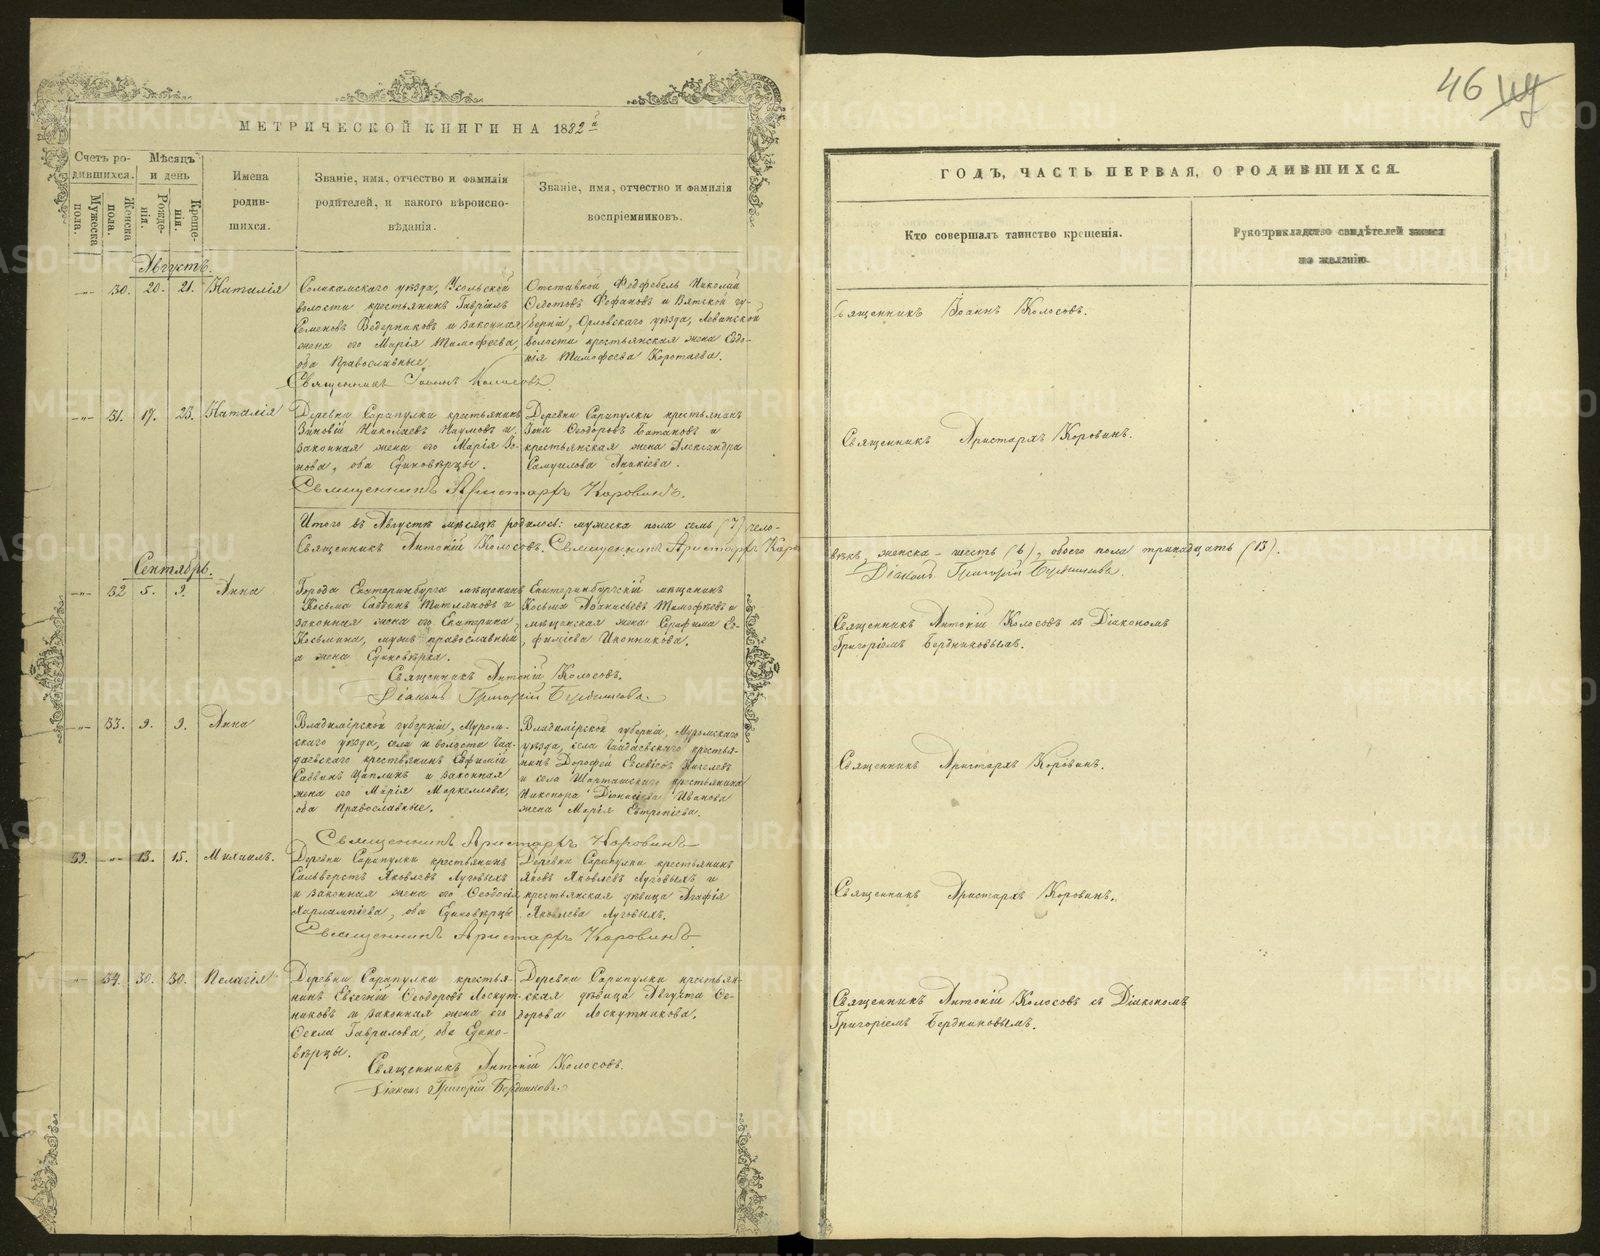 46
МЕТРИЧЕСКОЙ КНИГИ НА 1882й
ГОДЪ, ЧАСТЬ ПЕРВАЯ, О РОДИВШИХСЯ.
Счетъ ро-
дившихся.
Мѣсяцъ
и день
Мужеска
пола.
Женска
пола.
Рожде-
нія.
Креще-
нія.
Имена
родив-
шихся.
Званіе, имя, отчество и фамилія
родителей, и какого вѣроиспо-
вѣданія.
Званіе, имя, отчество и фамилія
воспріемниковъ.
Кто совершалъ таинство крещенія.
Рукоприкладство свидѣтелей записи
по желанію.
Августъ.
30. 20. 21. Наталія
Соликамскаго уѣзда, Усольской
волости крестьянинъ Гавріилъ
Семеновъ Ведерниковъ и законная
жена его Марія Тимофеева,
оба Православные.
Отставной Фельдфебель Николай
Федотовъ Фофановъ и Вятской гу-
берніи, Орловскаго уѣзда, Леванской
волости крестьянская жена Евдо-
кія Тимофеева Коротаева.
Священникъ Іоаннъ Колосовъ.
Священникъ Іоаннъ Колосовъ.
31. 17. 23. Наталія
Деревни Сарапулки крестьянинъ
Зиновій Николаевъ Наумовъ и
законная жена его Марія Іо-
нова, оба Единовѣрцы.
Деревни Сарапулки крестьянинъ
Іона Феодоровъ Батаковъ и
крестьянская жена Александра
Самуилова Ананіева.
Священникъ Аристархъ Коровинъ.
Священникъ Аристархъ Коровинъ.
Итого въ Августѣ мѣсяцѣ родилось: мужеска пола семь (7) чело-
вѣкъ, женска - шесть (6), обоего пола тринадцать (13).
Священникъ Антоній Колосовъ. Священникъ Аристархъ Коров
Діаконъ Григорій Бердниковъ.
Сентябрь.
32 5. 9. Анна
Города Екатеринбурга мѣщанинъ
Косьма Саввинъ Титляновъ и
законная жена его Екатерина
Косьмина, мужъ православный,
а жена Единовѣрка.
Екатеринбургскій мѣщанинъ
Косьма Аѳанасьевъ Тимофѣевъ и
мѣщанская жена Серафима Ев-
фиміева Иконникова.
Священникъ Антоній Колосовъ.
Діаконъ Григорій Бердниковъ.
Священникъ Антоній Колосовъ съ Діакономъ
Григоріемъ Бердниковымъ.
33. 9. 9. Анна
Владимірской губерніи, Муром-
скаго уѣзда, села и волости Чаа-
даевскаго крестьянинъ Евфимій
Саввинъ Цаплинъ и законная
жена его Марія Маркеллова,
оба Православные.
Владимірской губерніи, Муромскаго
уѣзда, села Чаадаевскаго крестья-
нинъ Дорофей Евсевіевъ Киселевъ
и села Шарташскаго крестьянина
Никанора Діонисіева Иванова
жена Марія Евтропіева.
Священникъ Аристархъ Коровинъ
Священникъ Аристархъ Коровинъ.
39. 13. 15. Михаилъ.
Деревни Сарапулки крестьянинъ
Сальверстъ Яковлевъ Луговыхъ
и законная жена его Феодосія
Харлампіева, оба Единовѣрцы.
Деревни Сарапулки крестьянинъ
Яковъ Яковлевъ Луговыхъ и
крестьянская дѣвица Агафія
Яковлева Луговыхъ.
Священникъ Аристархъ Коровинъ
Священникъ Аристархъ Коровинъ.
34. 30. 30. Пелагія
Деревни Сарапулки крестья-
нинъ Евгеній Феодоровъ Лоскут-
никовъ и законная жена его
Фекла Гаврилова, оба Едино-
вѣрцы.
Деревни Сарапулки крестьян-
ская дѣвица Августа Фе-
дорова Лоскутникова.
Священникъ Антоній Колосовъ.
Діаконъ Григорій Бердниковъ.
Священникъ Антоній Колосовъ съ Діакономъ
Григоріемъ Бердниковымъ.
METRIKI.GASO-URAL.RU